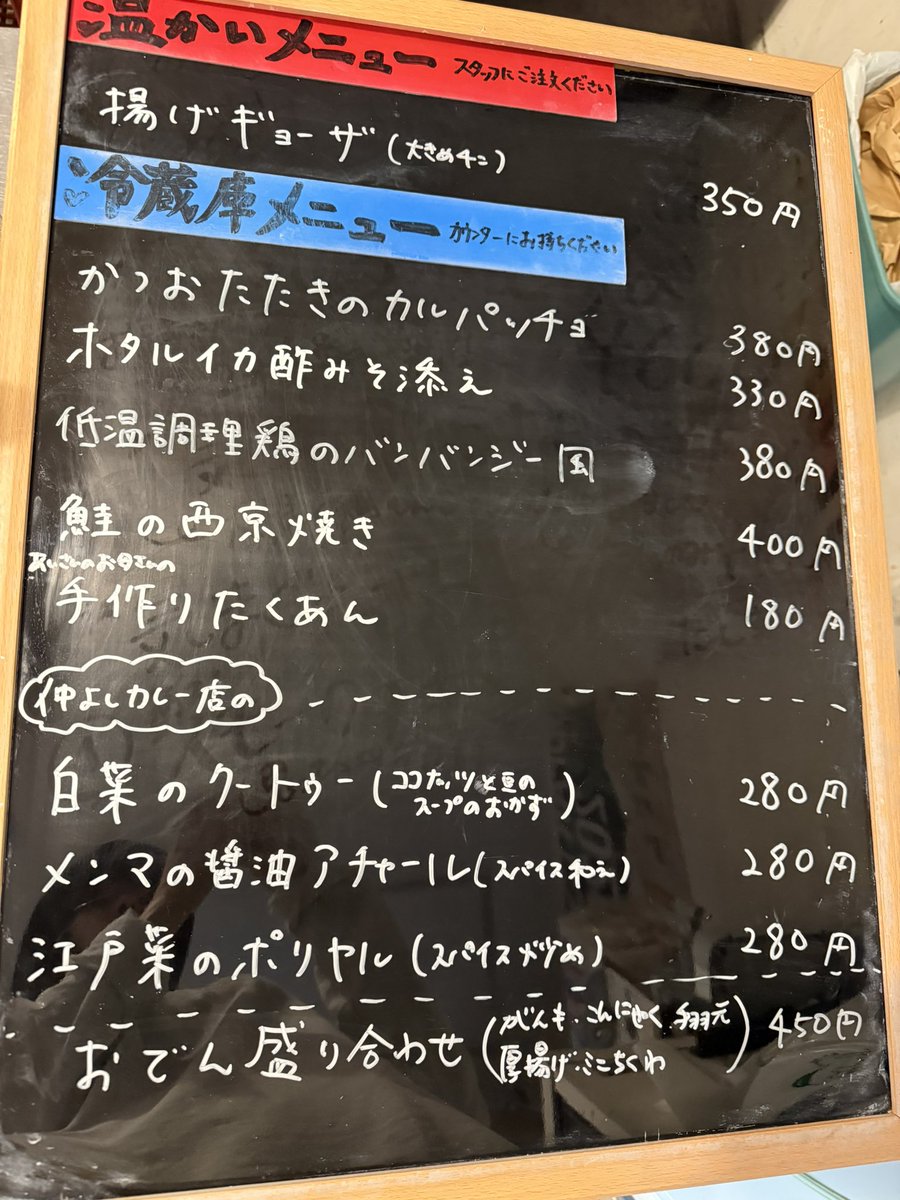 温かいメニュー スタッフにご注文ください
揚げギョーザ(大きめ4コ) 350円
冷蔵庫メニュー カウンターにお持ちください
かつおたたきのカルパッチョ 380円
ホタルイカ酢みそ添え 330円
低温調理鶏のバンバンジー風 380円
鮭の西京焼き 400円
お母さんの
手作りたくあん 180円
仲よしカレー店の
白菜のクートゥー(ココナッツと豆の
スープのおかず) 280円
メンマの醤油アチャール(スパイス和え) 280円
江戸菜のポリヤル(スパイス炒め) 280円
おでん盛り合わせ(がんも・こんにゃく 手羽元 450円
厚揚げ・ミニちくわ)